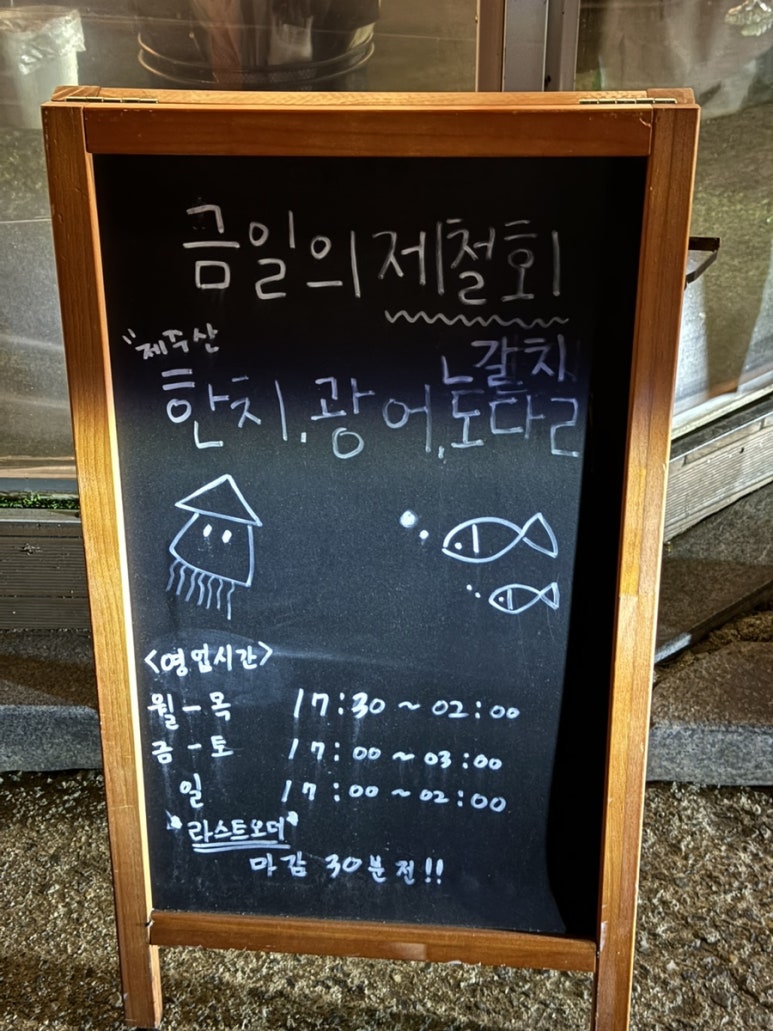 금일의 제철회
"제주산
갈치
한치, 광어, 도다리
<영업시간>
월-목 17:30~02:00
금-토 17:00~03:00
일 17:00~02:00
"라스트오더"
마감 30분전!!